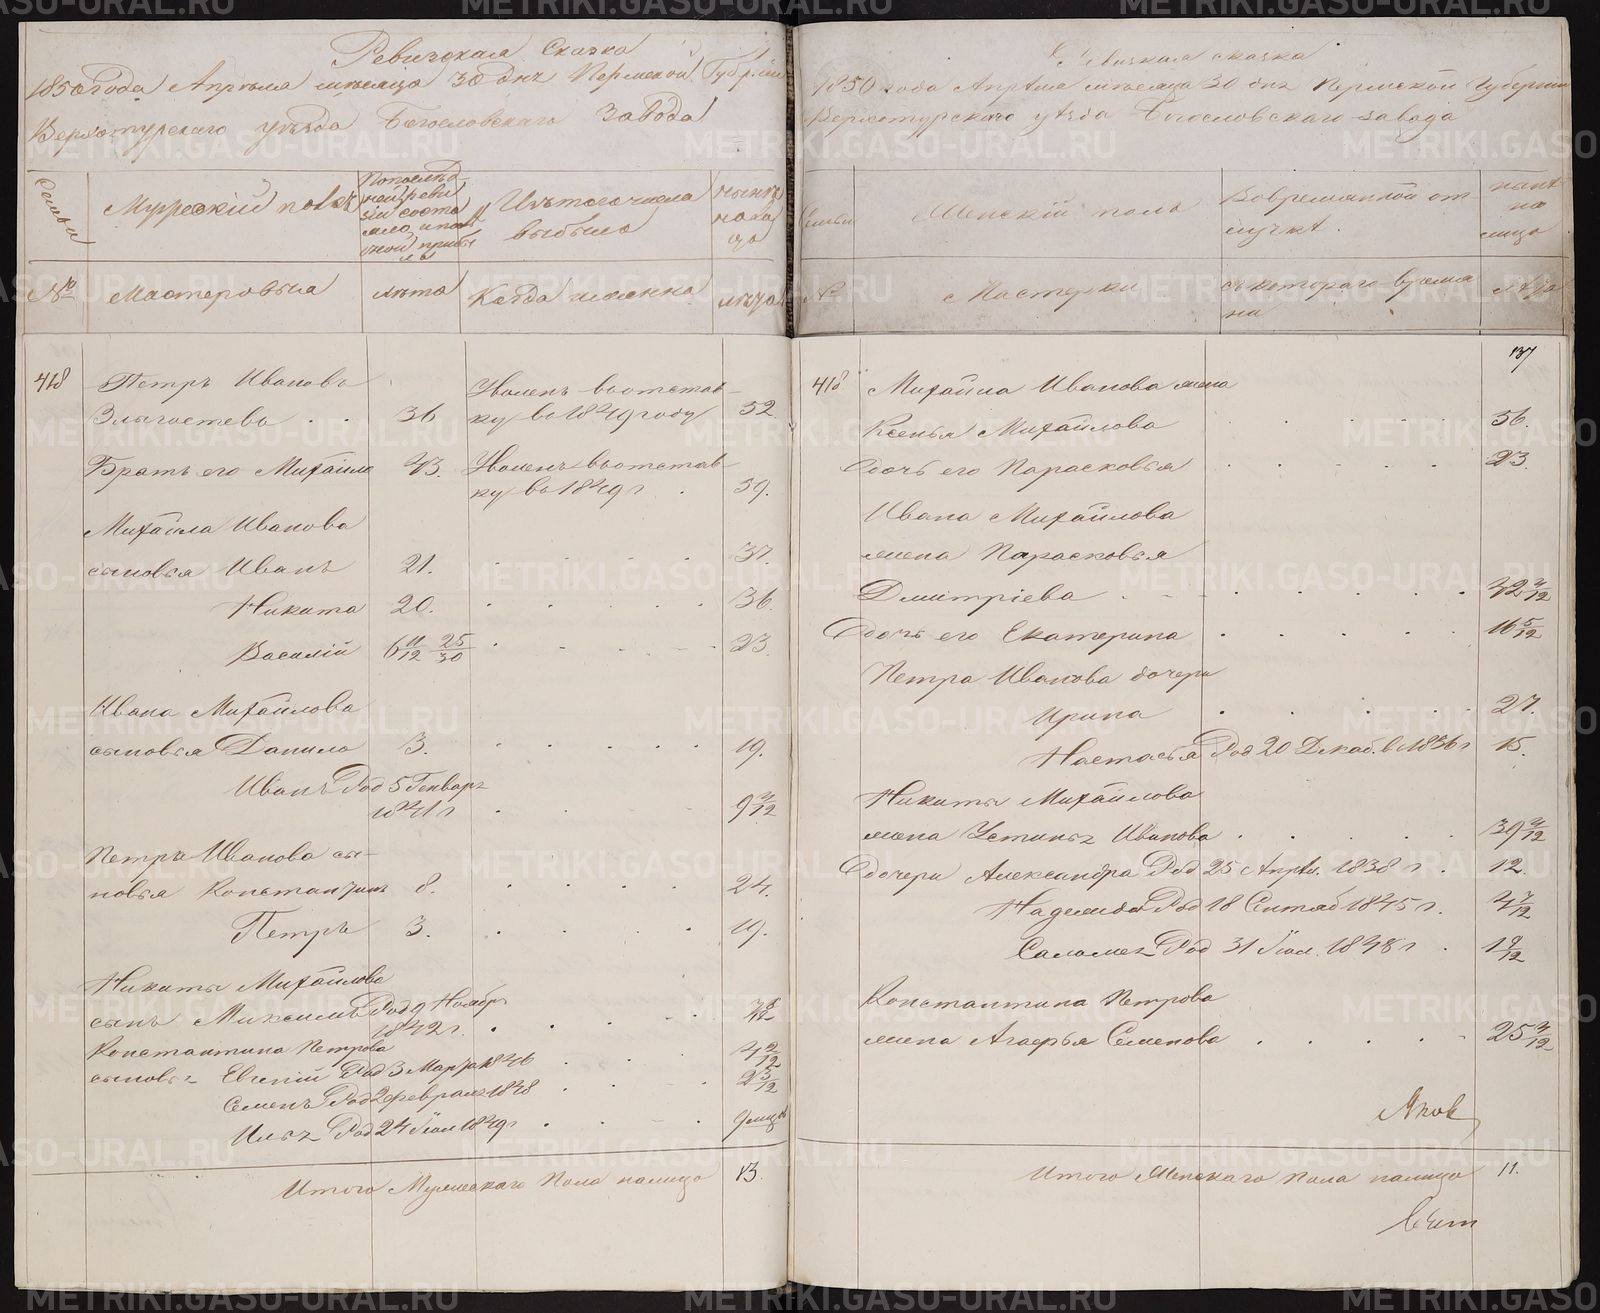 Ревизская Сказка
1850 Года Апреля месяца 30 дня Пермской Губернии
Верхотурскаго уезда Богословскаго Завода
Семьи
Мужеской полъ
По последней ревизии состояло и после оной прибыло
Изъ того числа выбыло
ныне на лицо
№
Мастеровыя
лета
Когда именно
лета
418
Петръ Ивановъ
Уволенъ въ отстав-
36
ку въ 1849 году
52
Братъ его Михайло
43.
Уволенъ въ отстав-
ку въ 1849 г.
59.
Михайла Иванова
сыновья Иванъ
21.
37.
Никита
20.
36.
Василій
6 11/12 25/30
23.
Ивана Михайлова
сыновья Данило
3.
19.
Иванъ Род 5 Генваря
1841 г
9 3/12
Петра Иванова сы-
новья Константинъ
8.
24.
Петръ
3.
19.
Никиты Михайлова
сынъ Максимъ Род 9 Ноября
1842 г.
Константина Петрова
сыновья Евгеній Род 3 Марта 1846
4 2/12
Семенъ Род 2 февраля 1848
2 3/12
Илья Род 24 Іюл 1849 г
9 мцов
Итого Мужескаго Пола налицо
13.
Ревизская сказка
1850 года Апреля месяца 30 дня Пермской Губернии
Верхотурскаго уезда Богословскаго завода
Семьи
Женскій полъ
Во временной отлучке
налицо
№
Мастерки
съ котораго времяни
лета
137
418
Михайла Иванова жена
Ксенья Михайлова
56.
Дочь его Парасковья
23.
Ивана Михайлова
жена Парасковья
Дмитріева
32 3/12
Дочь его Екатерина
16 5/12
Петра Иванова дочери
Ирина
27.
Настасья Род 20 Декаб. в 1836 г
15.
Никиты Михайлова
жена Устинья Иванова
39 3/12
Дочери Александра Род 25 Апрел. 1838 г.
12.
Надежда Род 18 Сентяб 1845 г.
4 7/12
Саломея Род 31 Іюл. 1848 г.
1 9/12
Константина Петрова
жена Агафья Семенова
25 3/12
Яков
Итого Женскаго Пола налицо
11.
METRIKI.GASO-URAL.RU